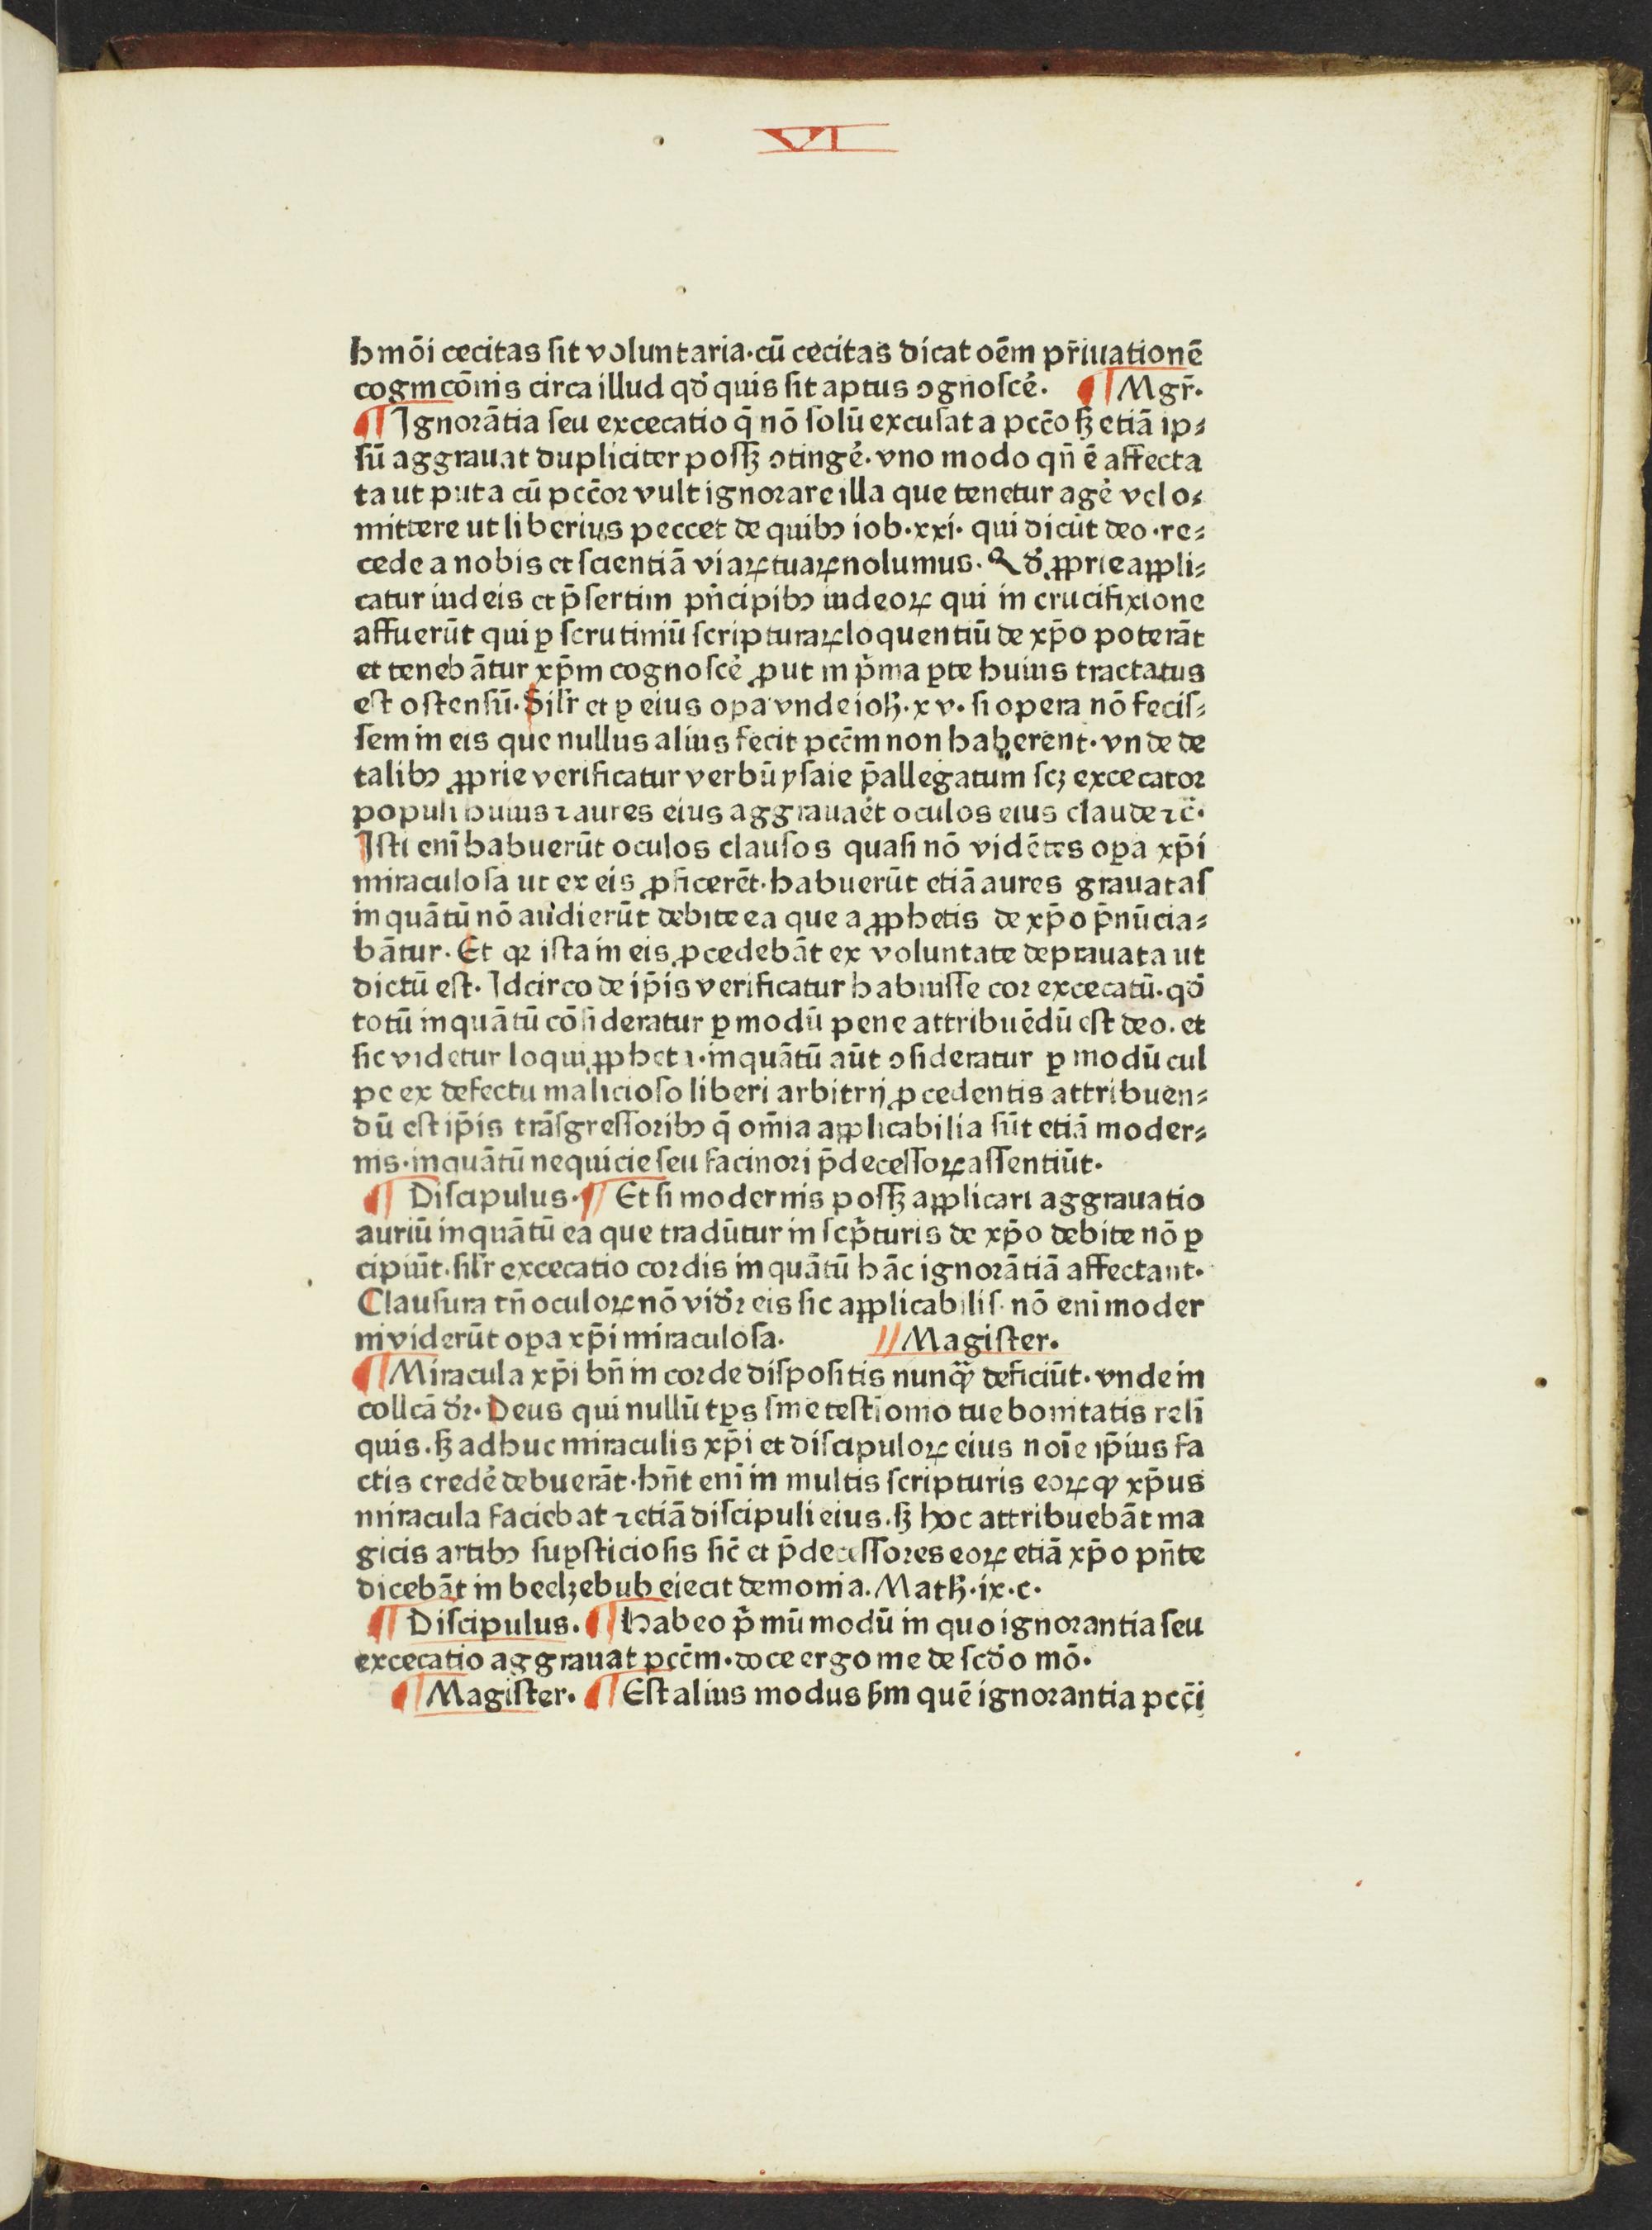 VI
hmōi cecitas sit voluntaria·cū cecitas dicat oēm pr̄iuationē
cognicōnis circa illud qd̛ quis sit aptus ɔgnoscē. ¶ Mgr̄.
¶ Ignorātia seu excecatio q̄ nō solū excusat a pcc̄o sꝫ etiā ip⸗
sū aggrauat dupliciter possꝫ ɔtingē. vno modo qn̄ ē affecta
ta ut puta cū pcc̄or vult ignorare illa que tenetur agē vel o⸗
mittere ut liberius peccet de quibꝰ iob·xxi· qui dicūt deo·re⸗
cede a nobis et scientiā viaꝝ tuaꝝ nolumus. Qd̛ ꝓprie appli⸗
catur iudeis et p̄sertim pn̄cipibꝰ iudeoꝝ qui in crucifixione
affuerūt qui ꝑ scrutiniū scripturaꝝ loquentiū de xp̄o poterāt
et tenebātur xp̄m cognoscē ꝓut in p̄ma ꝑte huius tractatus
est ostensū. Silr̄ et ꝑ eius oꝑa vnde ioh̄·xv· si opera nō fecis⸗
sem in eis que nullus alius fecit pcc̄m non haberent· vnde de
talibꝰ ꝓprie verificatur verbū ysaie p̄allegatum scꝫ excecator
populi huius ⁊ aures eius aggrauaēt oculos eius claude ⁊c̄·
Isti enī habuerūt oculos clausos quasi nō vidētes oꝑa xp̄i
miraculosa ut ex eis ꝓficerēt·habuerūt etiā aures grauatas
inquātū nō audierūt debite ea que a ꝓphetis de xp̄o p̄nūcia⸗
bātur. Et qꝛ ista in eis ꝓcedebāt ex voluntate deprauata ut
dictū est. Idcirco de ip̄is verificatur habuisse cor excecatū·qd̛
totū inquātū cōsideratur ꝑ modū pene attribuēdū est deo. et
sic videtur loqui ꝓpheta·inquātū aūt ɔsideratur ꝑ modū cul
pe ex defectu malicioso liberi arbitrij ꝓcedentis attribuen⸗
dū est ip̄is trāsgressoribꝰ q̄ om̄ia applicabilia sūt etiā moder⸗
nis·inquātū nequicie seu facinori p̄decessoꝝ assentiūt·
¶ Discipulus. ¶ Et si modernis possꝫ applicari aggrauatio
auriū inquātū ea que tradūtur in scp̄turis de xp̄o debite nō ꝑ
cipiūt·silr̄ excecatio cordis inquātū hāc ignorātiā affectant·
Clausura tn̄ oculoꝝ nō vid̛ꝛ eis sic applicabilis· nō enī moder
ni viderūt oꝑa xp̄i miraculosa. // Magister.
¶ Miracula xp̄i bn̄ in corde dispositis nunqꝫ̄ deficiūt· vnde in
collcā d̛ꝛ· Deus qui nullū tꝑs sine testīonio tue bonitatis reli
quis·sꝫ adhuc miraculis xp̄i et discipuloꝝ eius noīe ip̄ius fa
ctis credē debuerāt·hn̄t enī in multis scripturis eoꝝ ꝙ xp̄us
miracula faciebat ⁊ etiā discipuli eius. sꝫ hoc attribuebāt ma
gicis artibꝰ suꝑsticiosis sic̄ et p̄decessores eoꝝ etiā xp̄o pn̄te
dicebāt in beelzebub eiecit demonia. Math̄·ix·c·
¶ Discipulus. ¶ Habeo p̄mū modū in quo ignorantia seu
excecatio aggrauat pcc̄m·doce ergo me de scd̛o mō.
¶ Magister. ¶ Est alius modus s̄m quē ignorantia pcc̄i